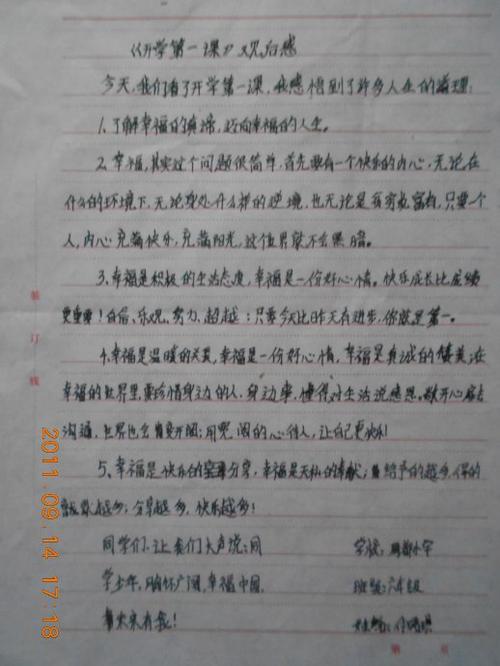 《开学第一课》观后感
今天,我们看了开学第一课,我感悟到了许多人生的道理:
1.了解幸福的真谛,迈向幸福的人生。
2.幸福,其实这个问题很简单,首先要有一个快乐的内心,无论在
什么的环境下,无论身处什么样的逆境,也无论是贫穷或富有,只要一个
人,内心充满快乐,充满阳光,这世界就不会黑暗。
3.幸福是积极的生活态度,幸福是一份好心情。快乐成长比成绩
更重要!自信、乐观、努力、超越:只要今天比昨天有进步,你就是第一。
4.幸福是温暖的关爱,幸福是一份好心情,幸福是真诚的赞美在
幸福的世界里要珍惜身边的人,身边事,懂得对生活说感恩。敞开心扉去
沟通,世界也会
的心待人,让自己更快乐!
5、幸福是快乐的分享,幸福是无私的奉献;给予的越多,得的
越多;分享越多,快乐越多!
同学们,让我们大声说:同 学校:小学
学少年,胸怀广阔,幸福中国, 班级:六年级
看未来有我! 姓名:
装
订
线
第 页
2011.09.14 17:18